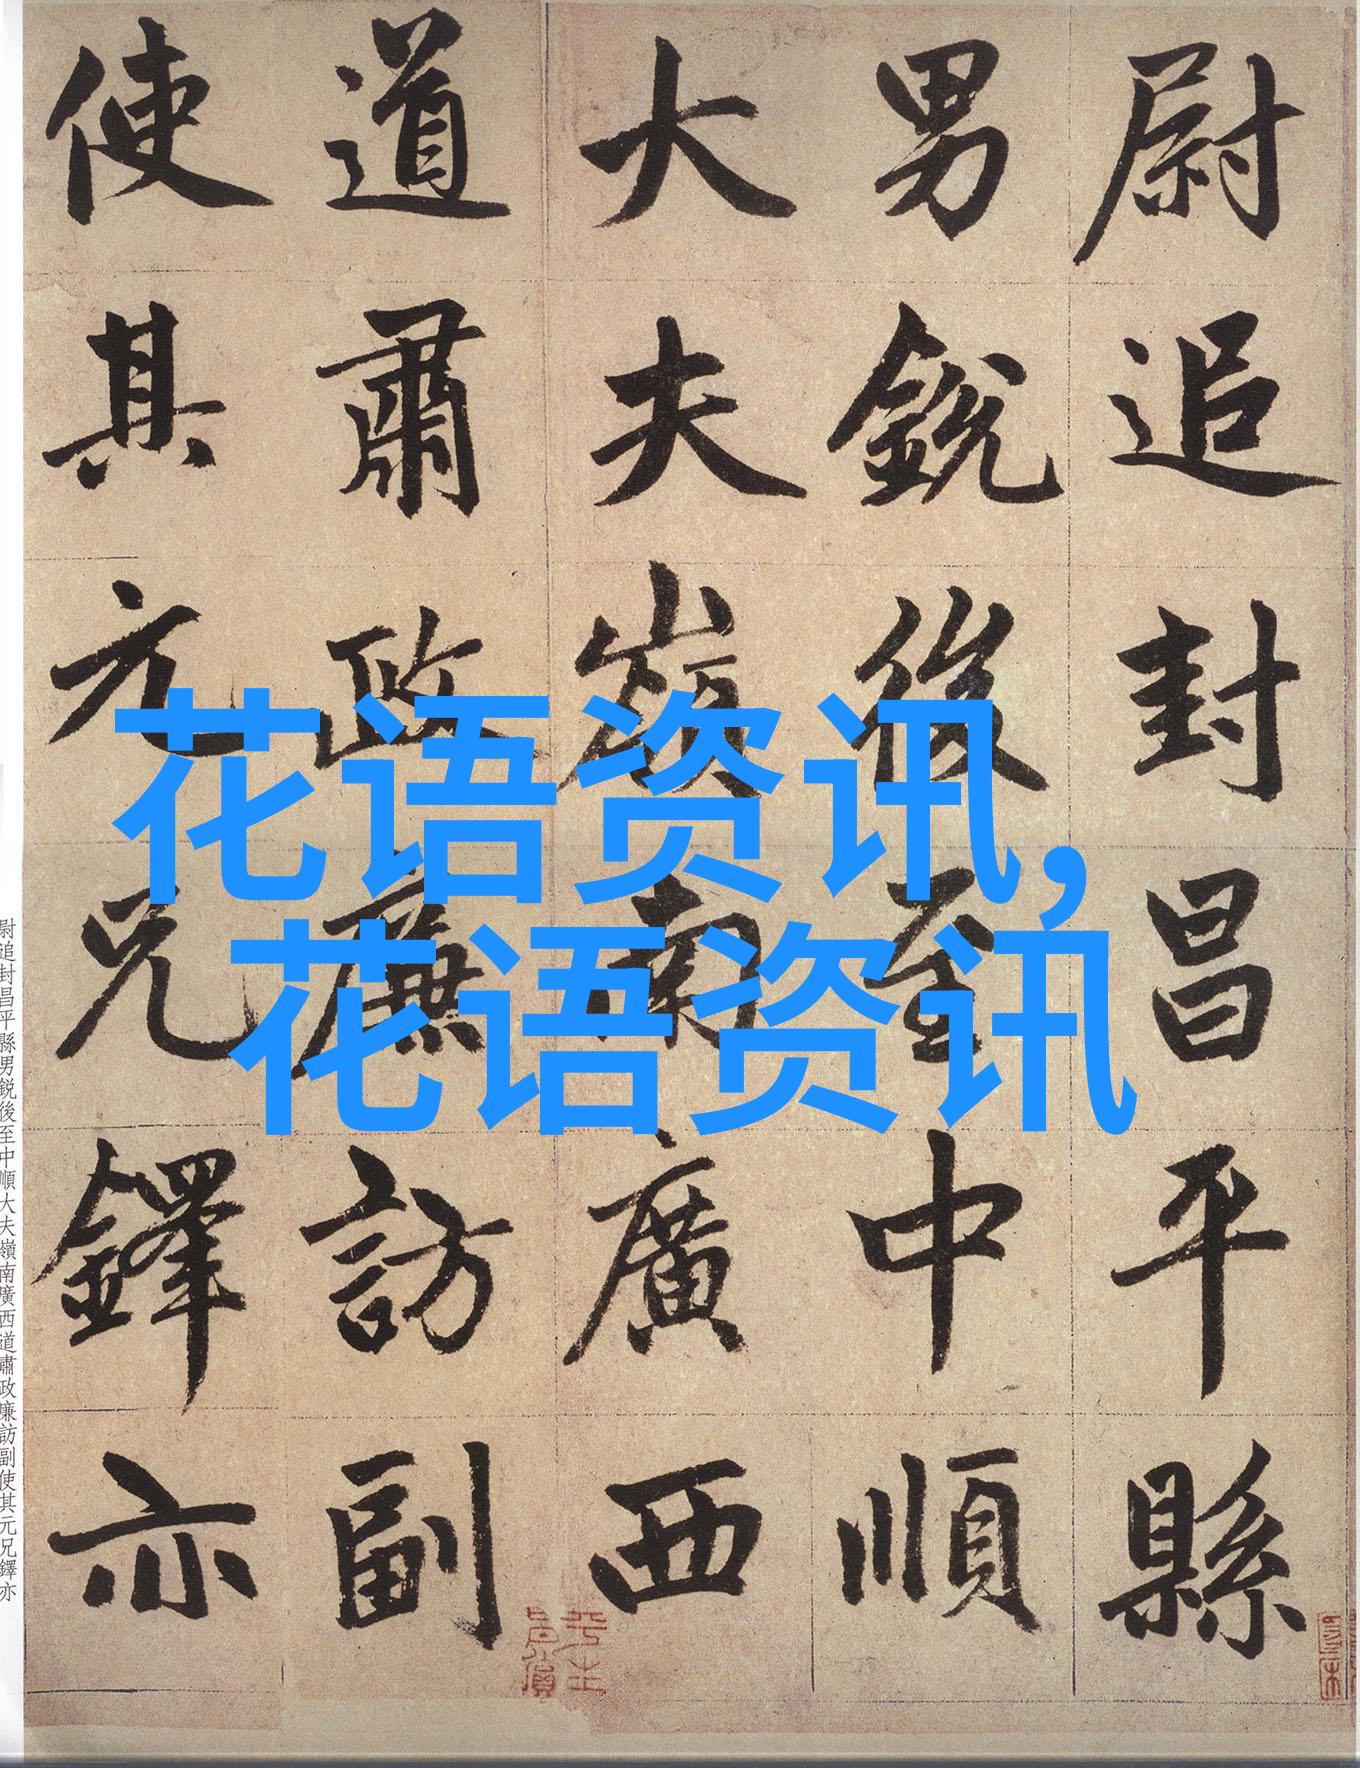 花语资讯,
花语资讯
尉追封昌平縣
男銳後至中順
大夫嶺南廣西
道肅政廉訪副
使其元兄鐸亦
尉追封昌平縣男銳後至中順大夫嶺南廣西道肅政廉訪副使其元兄鐸亦